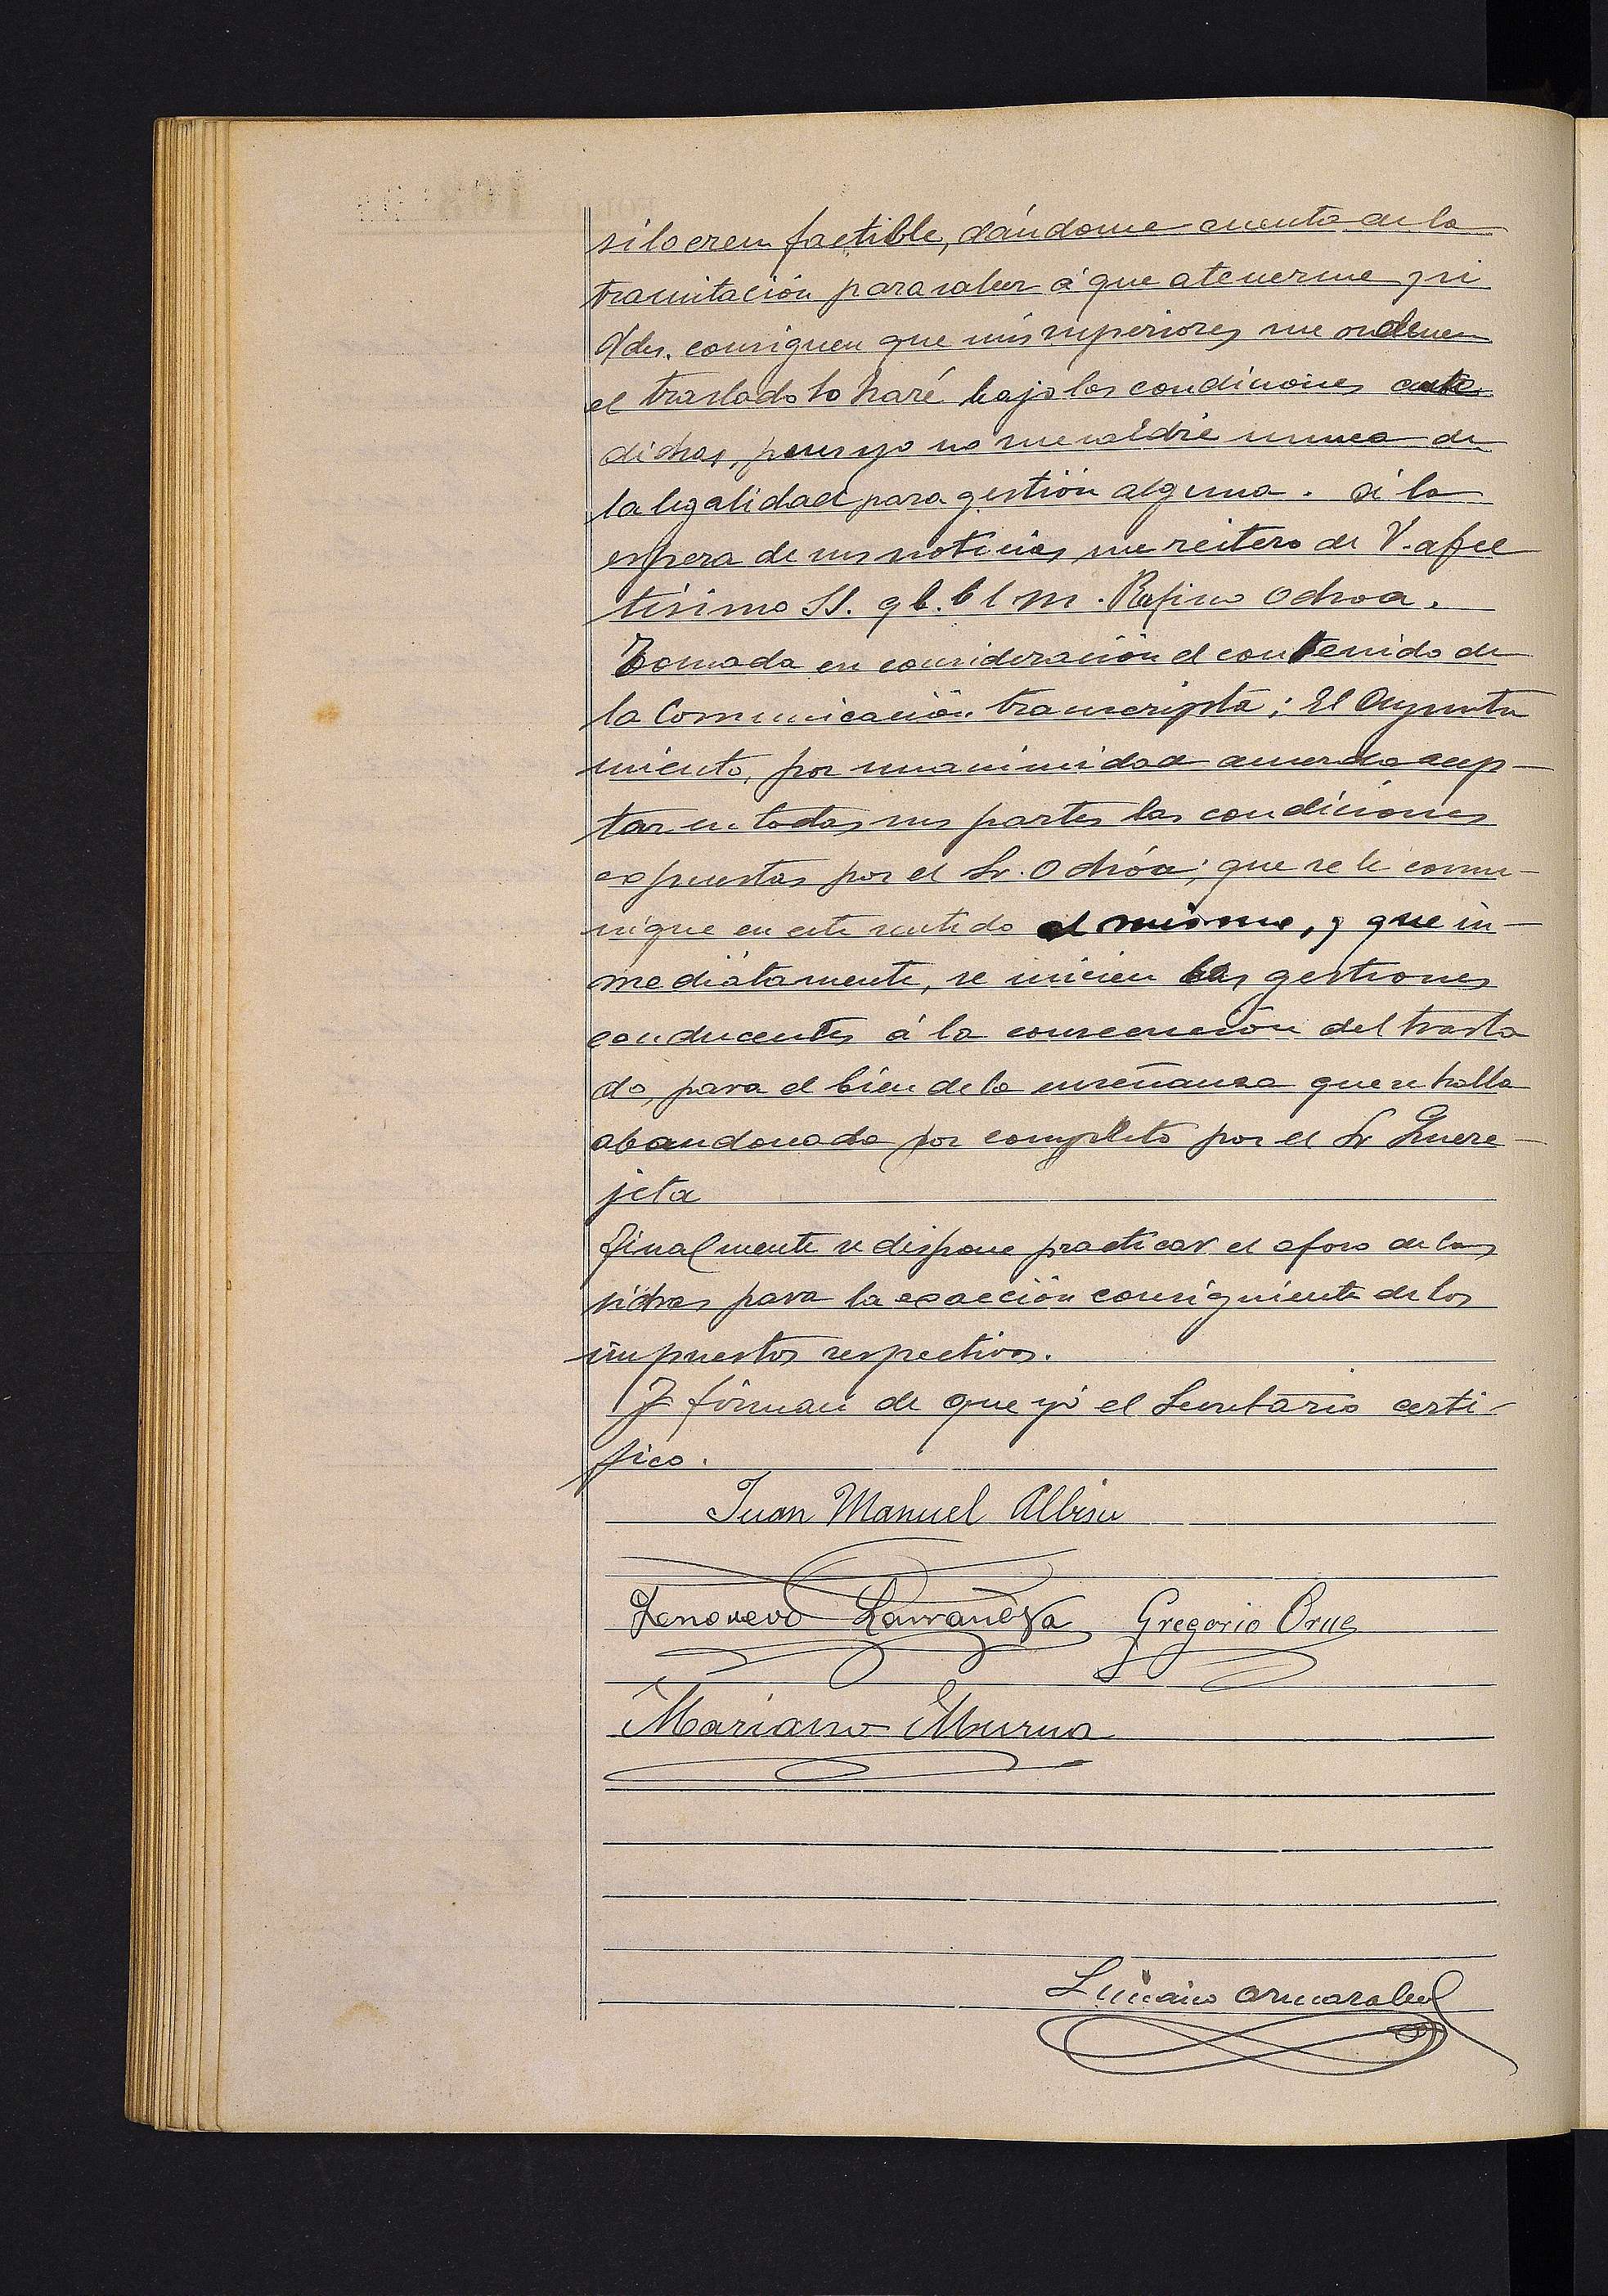 si lo creen factible, dándome cuenta de la
tramitación para saber á que atenerme y si
Vdes. consiguen que mis superiores me ordenen
el traslado lo haré bajo las condiciones ante
dichas, pues yo no me saldré nunca de
la legalidad para gestión alguna. á la
espera de sus noticias, me reitero de V. afec
tísimo SS. q b. s l m. Rufino Ochoa.
Tomada en consideración el contenido de
la Comunicación transcripta; El Ayunta
miento, por unanimidad acuerda acep-
tar en todas sus partes las condiciones
expuestas por el Sr. Ochóa; que se le comu-
nique en este sentido al mismo, y que in-
mediatamente, se inicien las gestiones
conducentes á la consecución del trasla
do, para el bien de la enseñanza que se halla
abandonada por completo por el Sr Quere-
jeta
finalmente se dispone practicar el aforo de las
sidras para la exacción consiguiente de los
impuestos respectivos.
Y firman de que yó el Secretario certi-
fico.
Juan Manuel Albisu
Larrañaga Gregorio Orue
Mariano Murua
Luciano